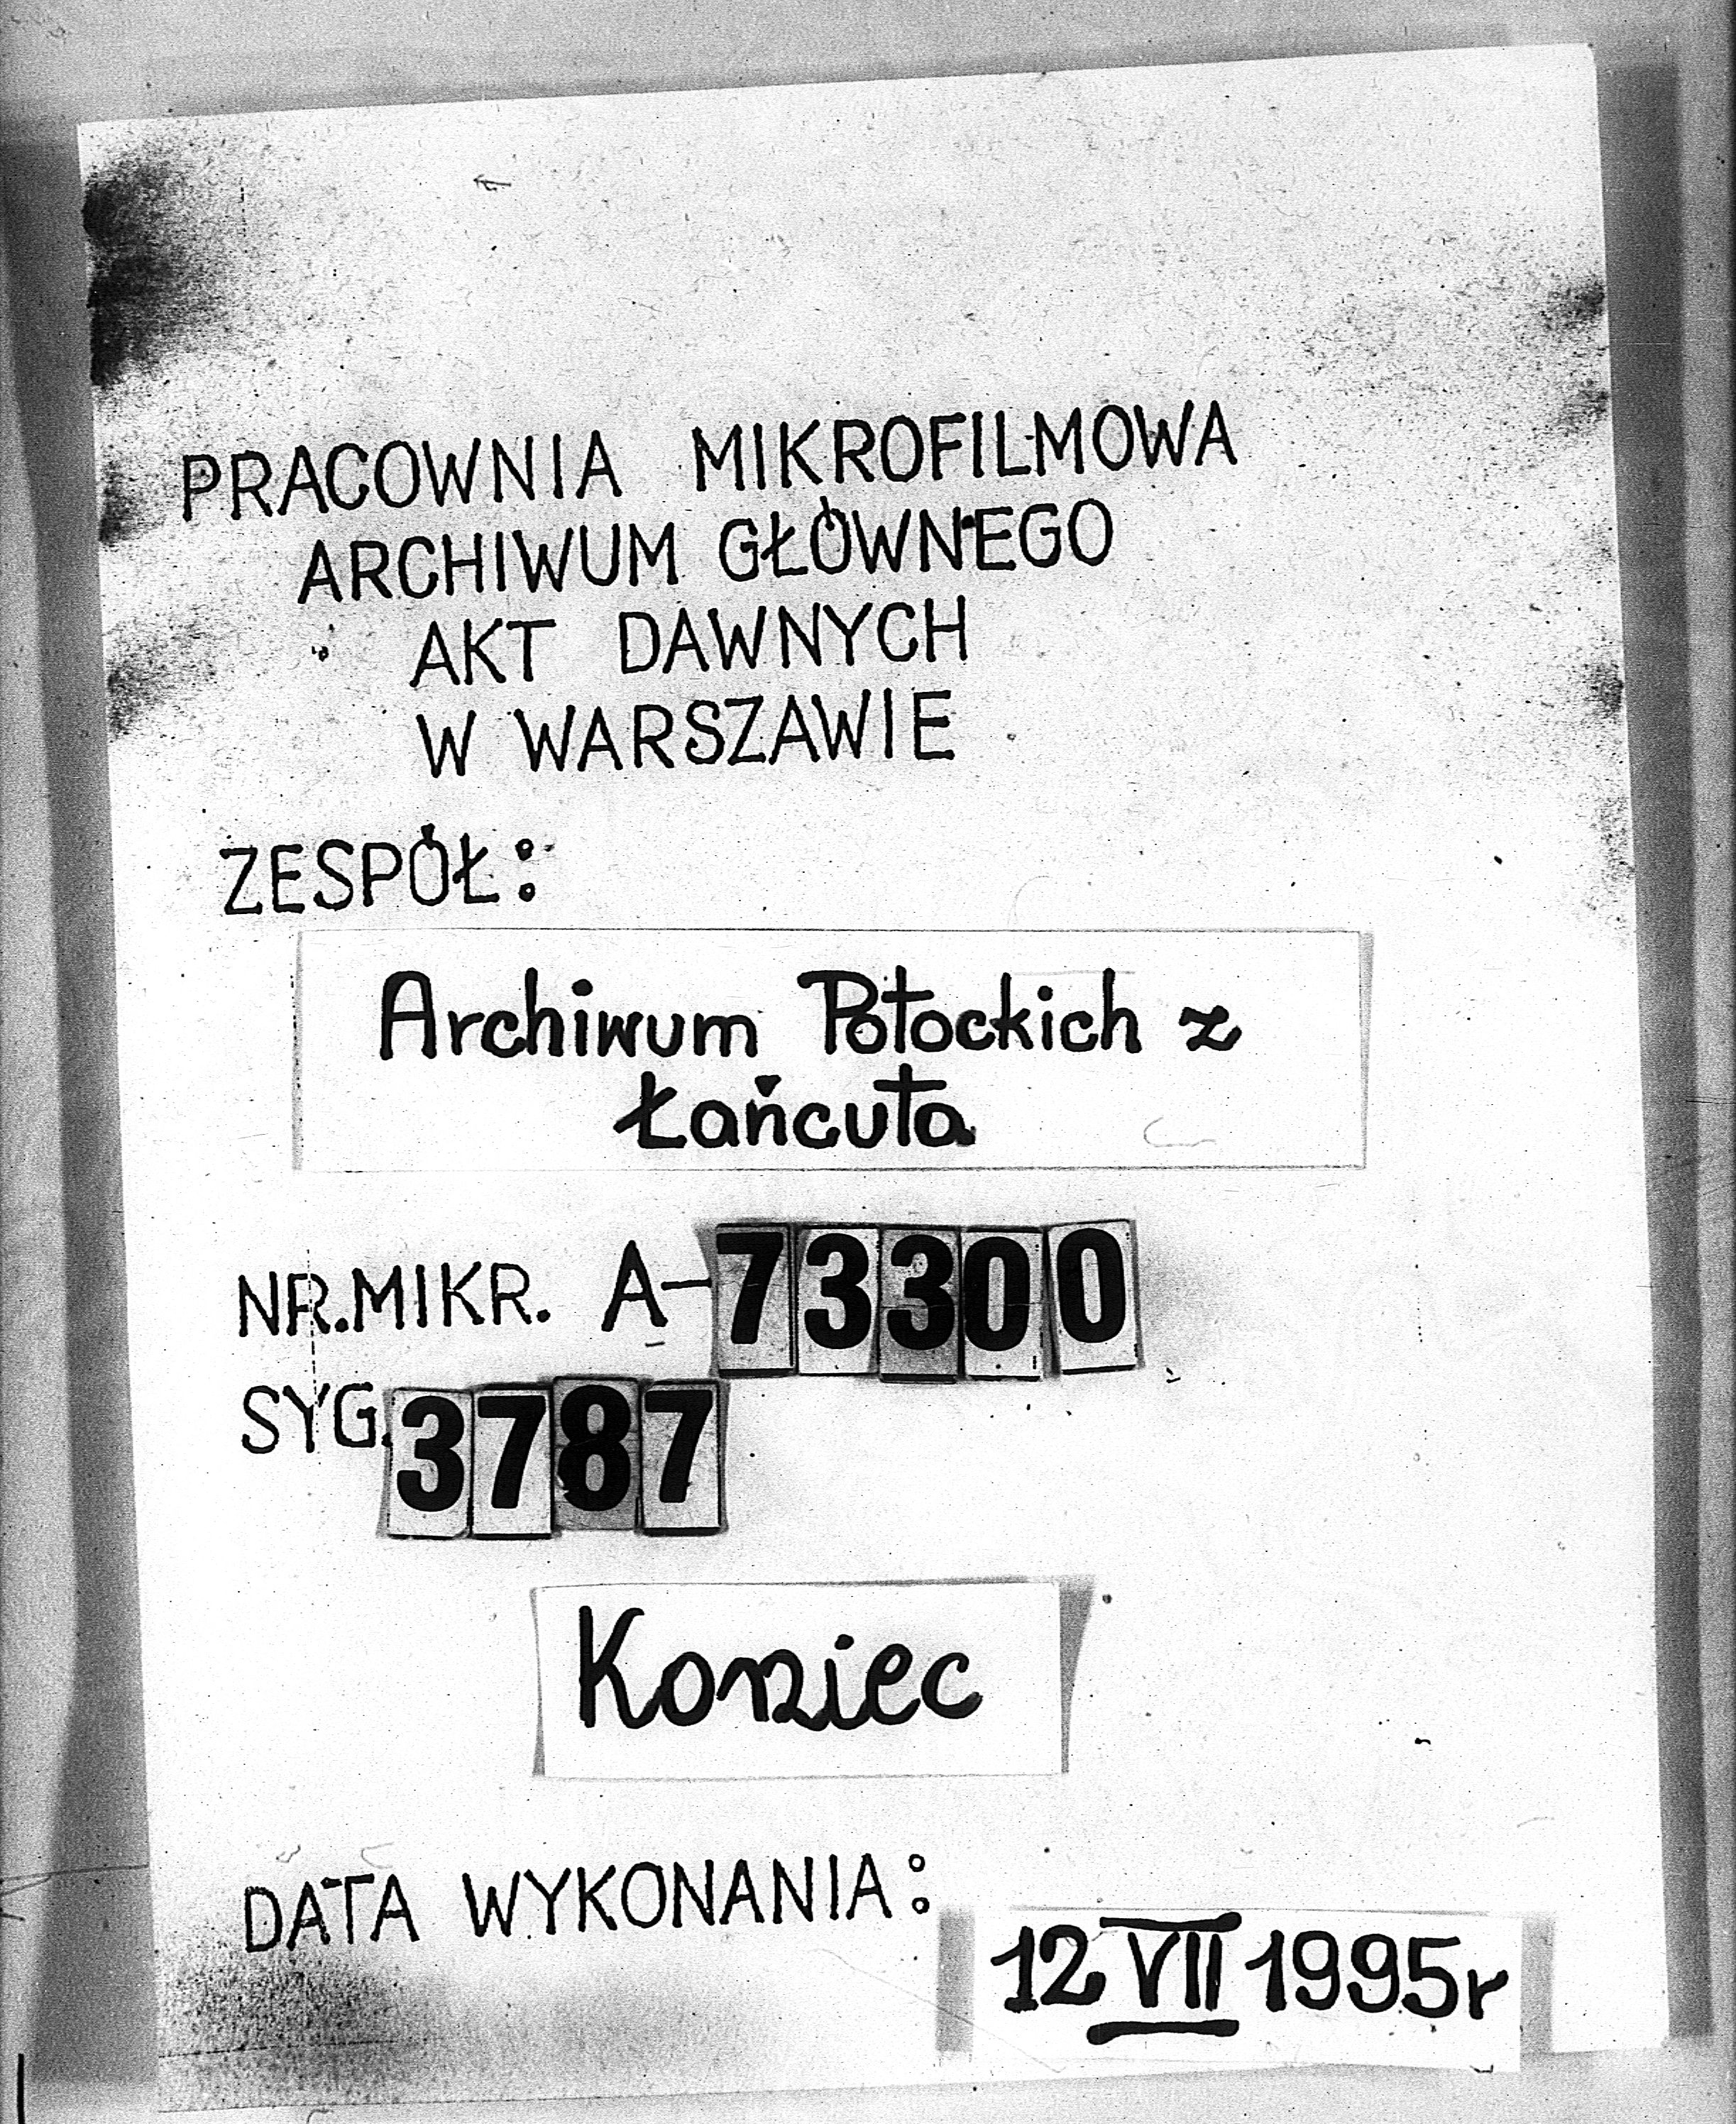 PRACOWNIA MIKROFILMOWA
ARCHIWUM GŁÓWNEGO
AKT DAWNYCH
W WARSZAWIE
ZESPÓŁ:
Archiwum Potockich z
Łańcuta
NR.MIKR. A-73300
SYG.3787
Koniec
DATA WYKONANIA:
12 VII 1995r